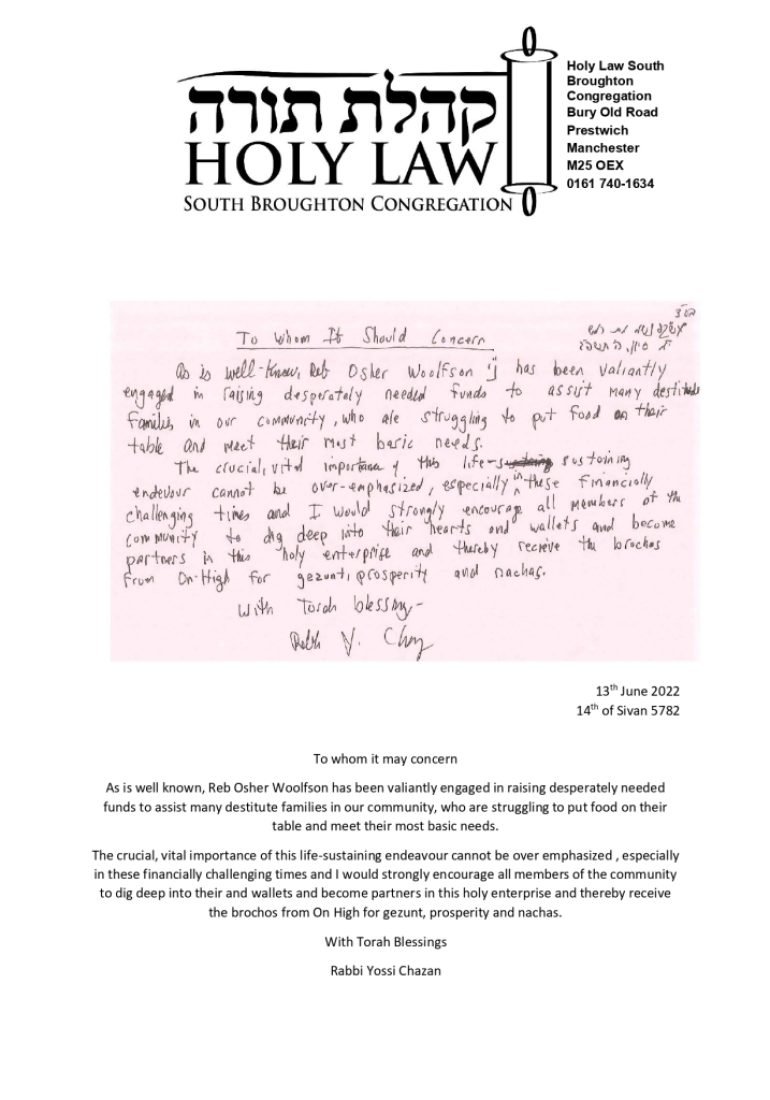 קהלת תורה
HOLY LAW
SOUTH BROUGHTON CONGREGATION
Holy Law South
Broughton
Congregation
Bury Old Road
Prestwich
Manchester
M25 OEX
0161 740-1634
To Whom It Should Concern
As is well-known, Reb Osher Woolfson has been valiantly
engaged in raising desperately needed funds to assist many destitute
families in our community, who are struggling to put food on their
table and meet their most basic needs.
The crucial, vital importance of this life-sustaining
endevour cannot be over-emphasized, especially in these financially
challenging times and I would strongly encourage all members of the
community to dig deep into their hearts and wallets and become
partners in this holy enterprise and thereby recieve the brochos
from On-High for gezunt, prosperity and nachas.
With Torah blessings-
13th June 2022
14th of Sivan 5782
To whom it may concern
As is well known, Reb Osher Woolfson has been valiantly engaged in raising desperately needed
funds to assist many destitute families in our community, who are struggling to put food on their
table and meet their most basic needs.
The crucial, vital importance of this life-sustaining endeavour cannot be over emphasized , especially
in these financially challenging times and I would strongly encourage all members of the community
to dig deep into their and wallets and become partners in this holy enterprise and thereby receive
the brochos from On High for gezunt, prosperity and nachas.
With Torah Blessings
Rabbi Yossi Chazan